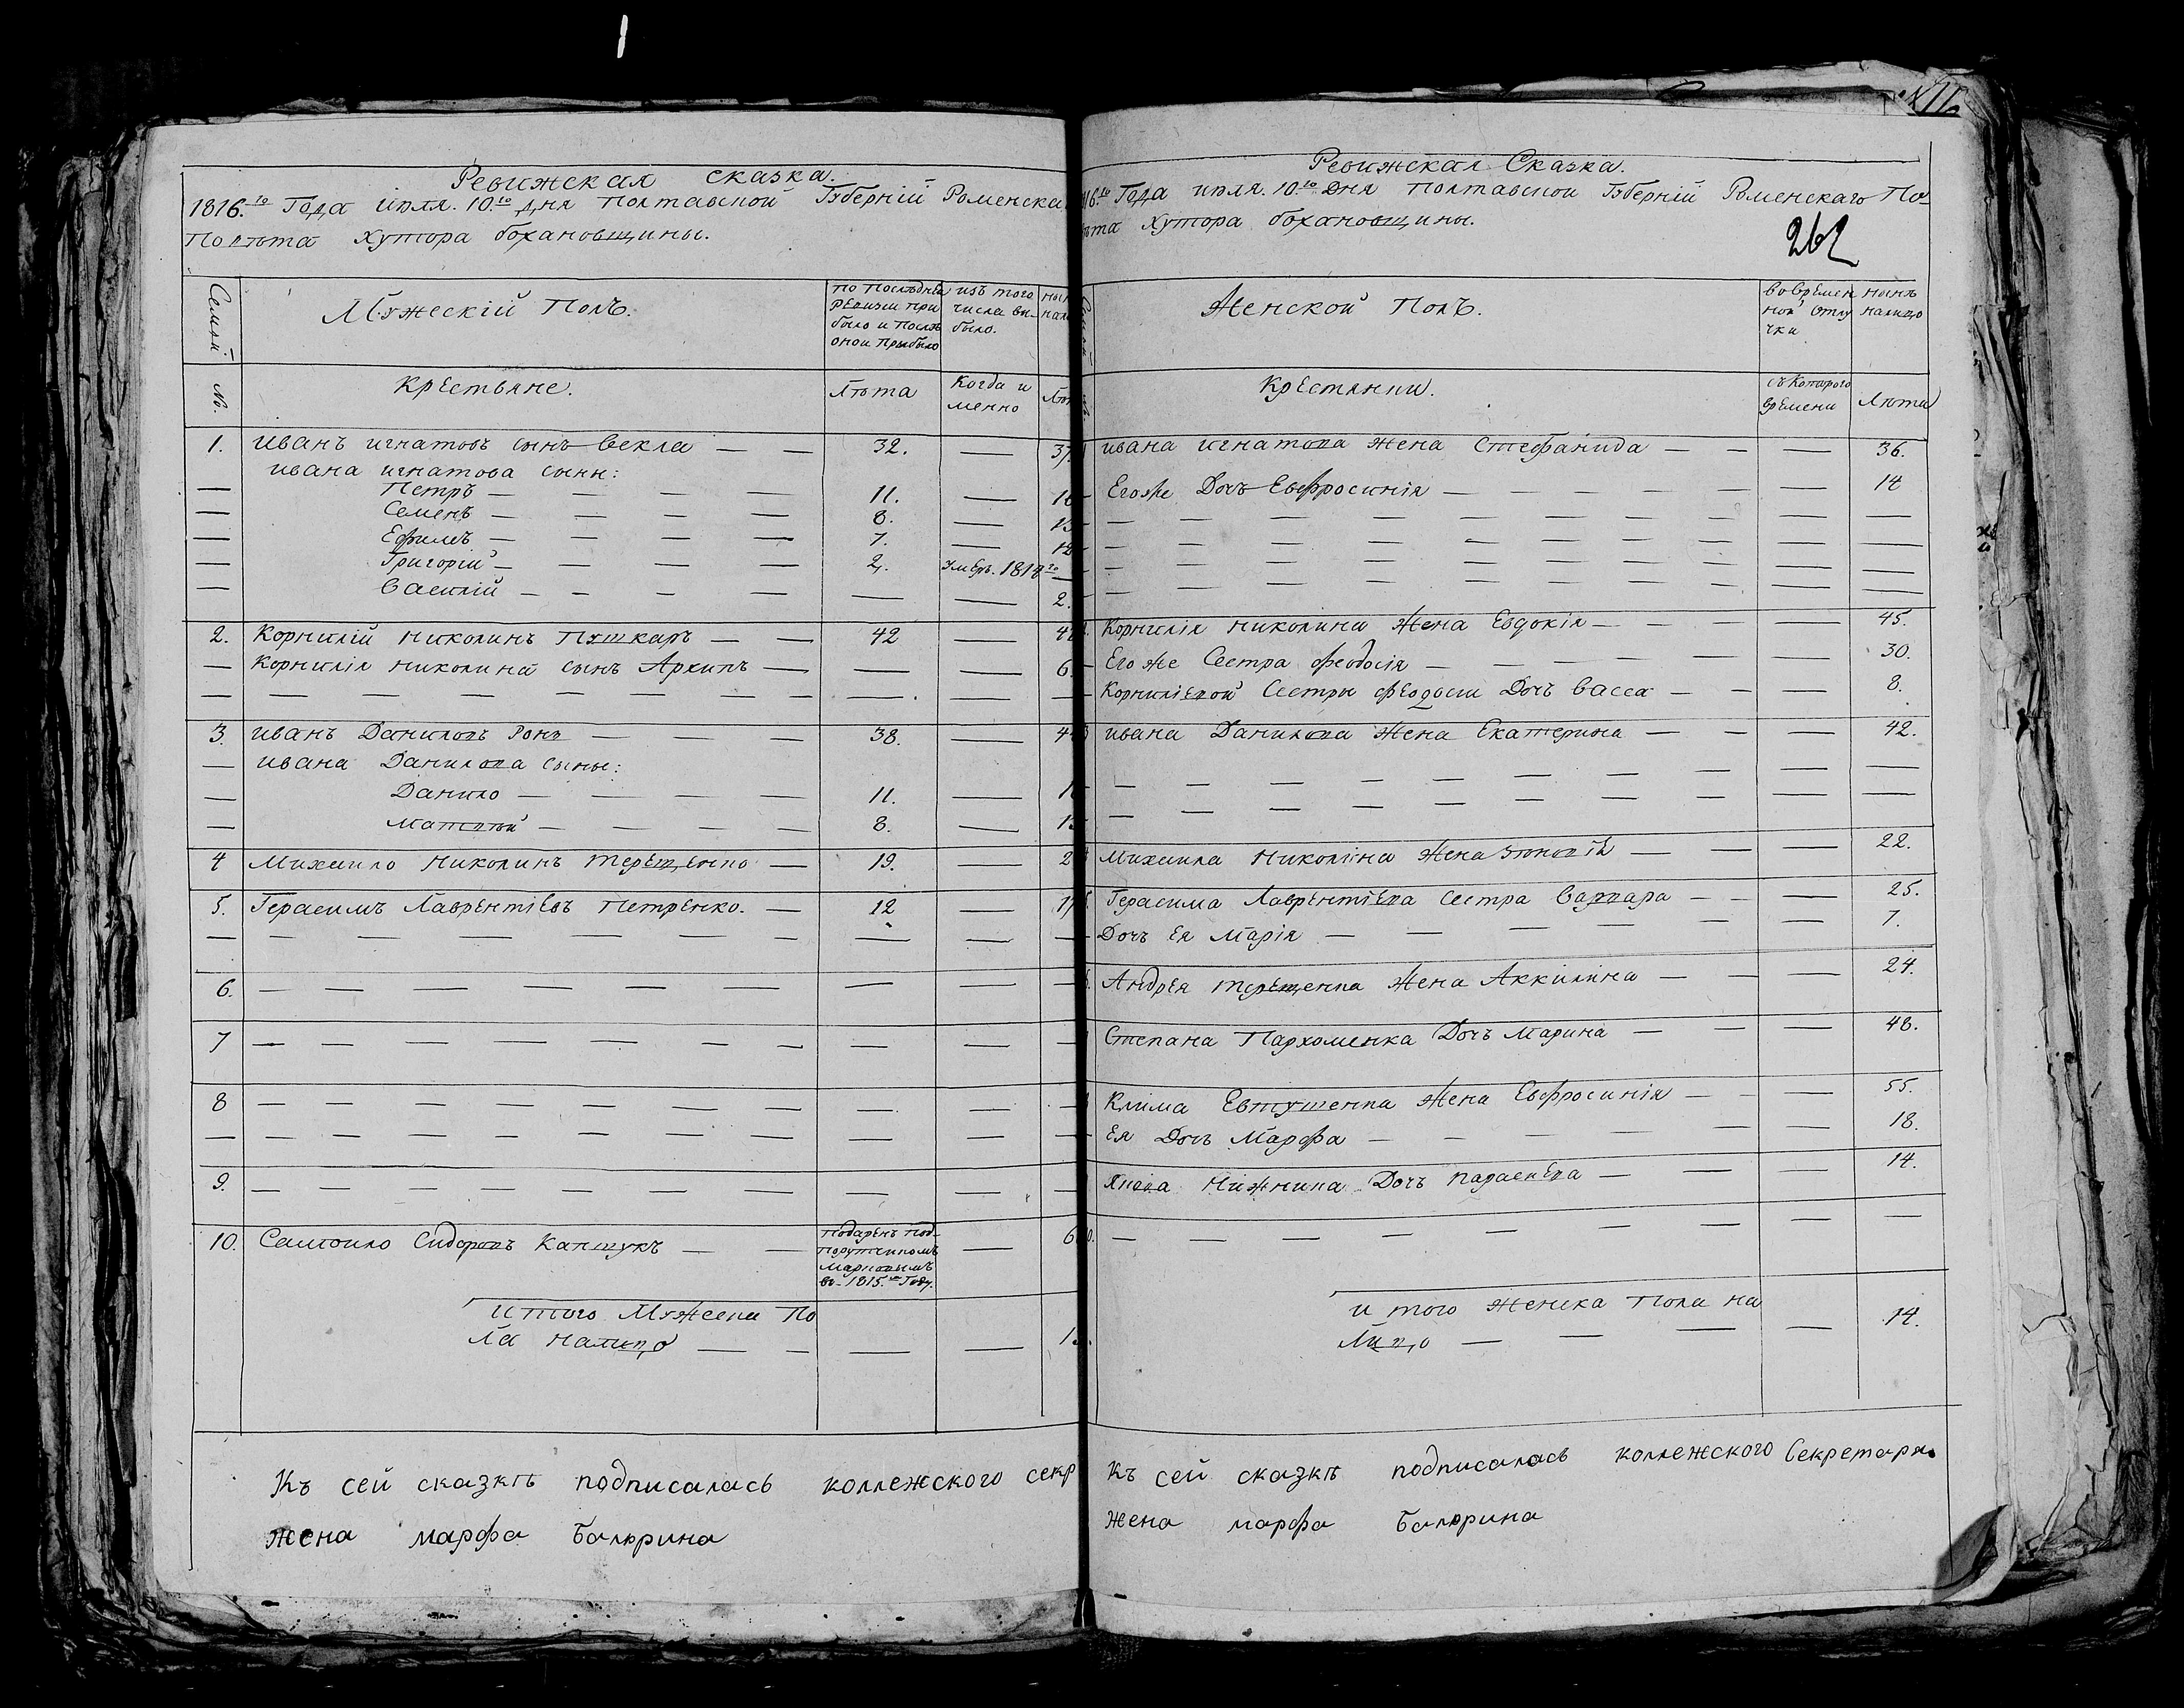 Ревижская сказка.
1816.го Года іюля. 10.го дня Полтавской Губерніи Роменска
Повѣта Хутора бохановщины.
Семьи
Мужескій Полъ.
по Послѣдней ревизіи при было и Послѣ оной Прыбыло
изъ того числа вы- было.
№.
крестьяне.
Лѣта
Когда и менно
1. иванъ игнатовъ сынъ Векла — — 32. — 37.
ивана игнатова сыны:
— Петръ — — — — 11. —
— Семенъ — — — — 8. —
— Ефимъ — — — — 7. —
— Григорій — — — — 2. умеръ. 1814го —
— Василій — — — — — — 2.
2. Корнилій николинъ Пушкаръ — — 42 —
— Корнилія николина сынъ Архипъ — — — 6
3. иванъ Даниловъ — — — 38. —
— ивана Данилова сыны:
— Данило — — — — 11. —
— Матвѣй — — — — 8. —
4 Михаило Николинъ терещенко — 19. — 2
5. Герасимъ Лаврентіевъ Петренко. — 12 —
6. — — — — — — — —
7 — — — — — — — —
8 — — — — — — — —
9. — — — — — — — —
10. Самоило Сидоровъ Каптукъ — — Подаренъ Под- Порутчикомъ Марковымъ въ 1815.м Году. — 6
итого Мужеска По
ла налицо — — — —
Къ сей сказкѣ подписалась коллежского секр
жена марфа Балюрина
Ревижская Сказка.
16.го Года июля. 10.го Дня Полтавской Губерніи Роменскаго По
ѣта Хутора бохановщины.
262
Женской Полъ.
во времен ной отлу чки
нынѣ налицо
Крестянки.
съ Котораго времени
Лѣта
ивана игнатова жена Стефанида — — — 36.
Егоже Дочъ Евфросинія — — — — — 14
Корнилія николина Жена Евдокія — — — — 45.
Его же Сестра феодосія — — — — — 30.
Корниліевой Сестры феодосіи Дочъ Васса — — — 8.
ивана Данилова Жена Екатерина — — — 42.
Михаила Николина Жена Зиновія — — — 22.
Герасима Лаврентіева Сестра Варвара — — — 25.
Дочъ Ея Марія — — — — — 7.
Андрея терещенка Жена Аккилина — — — 24.
Степана Пархоменка Дочъ Марина — — — 48.
Клима Евтушенка Жена Евфросинія — — — 55.
Ея Дочъ Марфа — — — — — 18.
Якова Нижника Дочъ параскева — — — 14.
— — — — — — — — —
и того женска Пола на
Лицо — — — — 14.
Къ сей сказкѣ подписалась коллежского Секретаря
жена марфа Балюрина